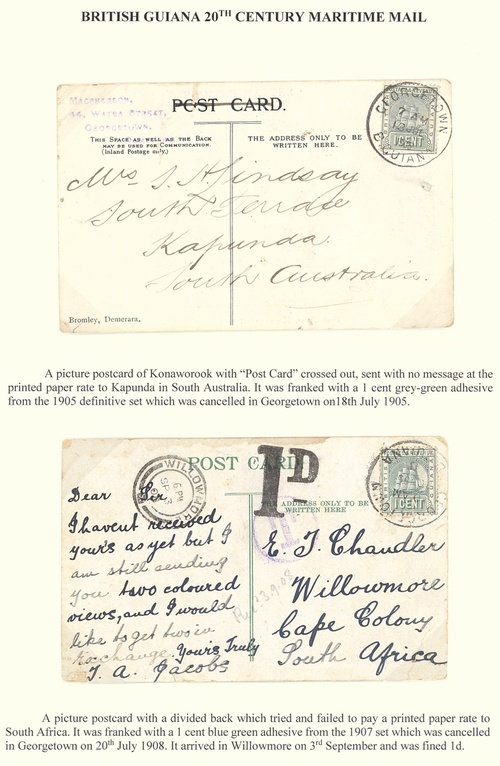 BRITISH GUIANA 20TH CENTURY MARITIME MAIL
MACPHERSON,
14, WATER STREET,
GEORGETOWN.
POST CARD.
THIS SPACE AS WELL AS THE BACK
MAY BE USED FOR COMMUNICATION.
(Inland Postage only.)
THE ADDRESS ONLY TO BE
WRITTEN HERE.
GEORGETOWN
1 CENT
Mrs J. H. Lindsay
South Terrace
Kapunda.
South Australia.
Bromley, Demerara.
A picture postcard of Konaworook with “Post Card” crossed out, sent with no message at the
printed paper rate to Kapunda in South Australia. It was franked with a 1 cent grey-green adhesive
from the 1905 definitive set which was cancelled in Georgetown on18th July 1905.
POST CARD
WILLOWMORE
6 PM
SP 3
1D
ADDRESS ONLY TO BE
WRITTEN HERE
1 CENT
Dear Sir,
I havent received
yours as yet but I
am still sending
you two coloured
views, and I would
like to get two in
Exchange. Yours Truly
T. A. Jacobs
3.9.08
E. J. Chandler
Willowmore
Cape Colony
South Africa
A picture postcard with a divided back which tried and failed to pay a printed paper rate to
South Africa. It was franked with a 1 cent blue green adhesive from the 1907 set which was cancelled
in Georgetown on 20th July 1908. It arrived in Willowmore on 3rd September and was fined 1d.